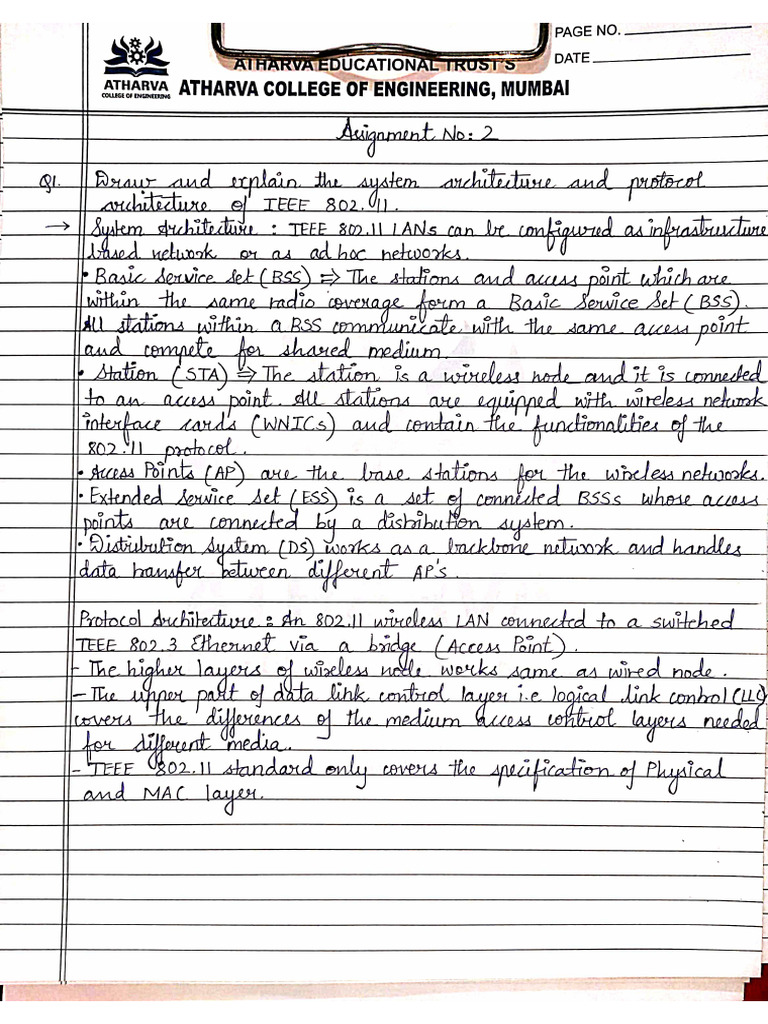 PAGE NO.
DATE
ATHARVA
COLLEGE OF ENGINEERING
ATHARVA EDUCATIONAL TRUST'S
ATHARVA COLLEGE OF ENGINEERING, MUMBAI
Assignment No: 2
Q1. Draw and explain the system architecture and protocol
architecture of IEEE 802.11.
→ System Architecture : IEEE 802.11 LANs can be configured as infrastructure
based network or as ad hoc networks.
• Basic Service Set (BSS) ⇒ The stations and access point which are
within the same radio coverage form a Basic Service Set (BSS).
All stations within a BSS communicate with the same access point
and compete for shared medium.
• Station (STA) ⇒ The station is a wireless node and it is connected
to an access point. All stations are equipped with wireless network
interface cards (WNICs) and contain the functionalities of the
802.11 protocol.
• Access Points (AP) are the base stations for the wireless networks.
• Extended Service Set (ESS) is a set of connected BSSs whose access
points are connected by a distribution system.
• Distribution System (DS) works as a backbone network and handles
data transfer between different AP's.
Protocol Architecture : An 802.11 wireless LAN connected to a switched
IEEE 802.3 Ethernet via a bridge (Access Point).
- The higher layers of wireless node works same as wired node.
- The upper part of data link control layer i.e logical link control (LLC)
covers the differences of the medium access control layers needed
for different media.
- IEEE 802.11 standard only covers the specification of Physical
and MAC layer.